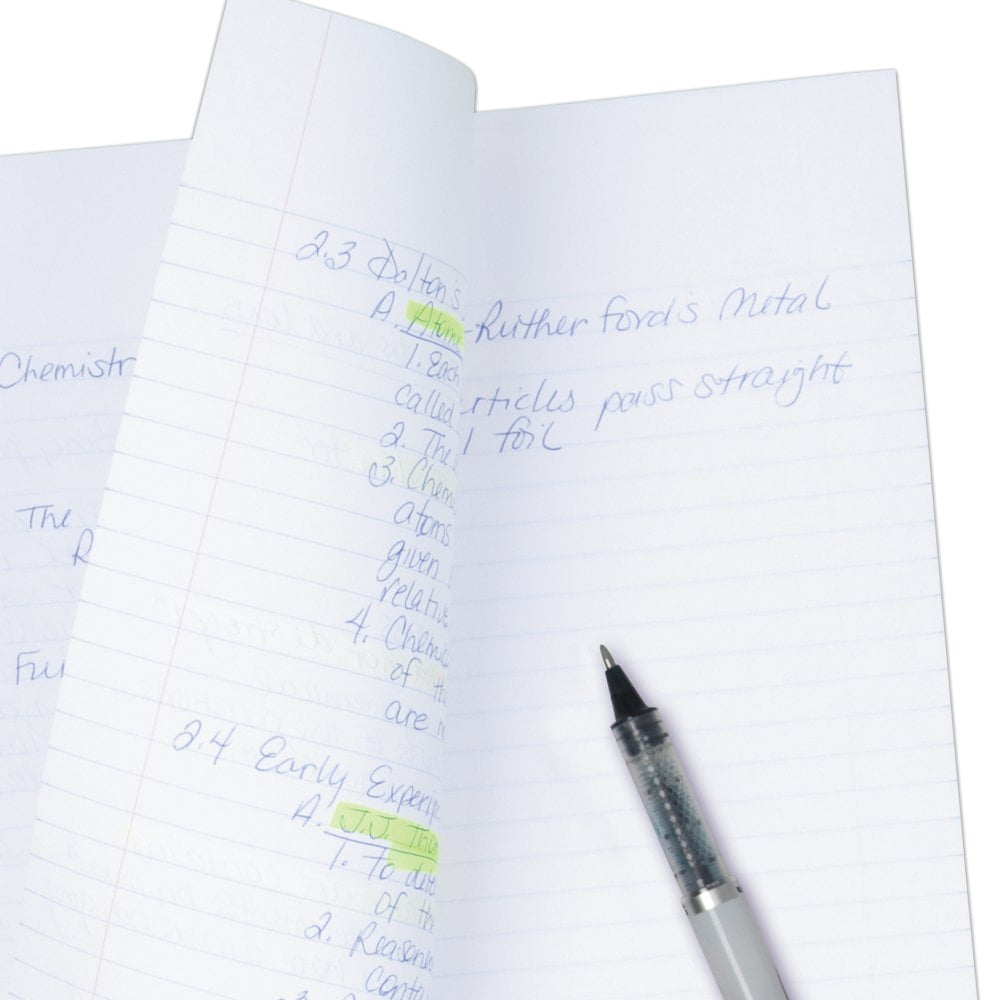 Chemistr
The
R
Fu
2.3 Dalton's
A. Atomi
1. Each
called
2. The
3. Chem
atoms
given
relativ
4. Chemic
of th
are r
2.4 Early Experi
A. J.J. Tho
1. To dete
of the
2. Reasone
contai
3.
-Rutherford's Metal
rticles pass straight
l foil